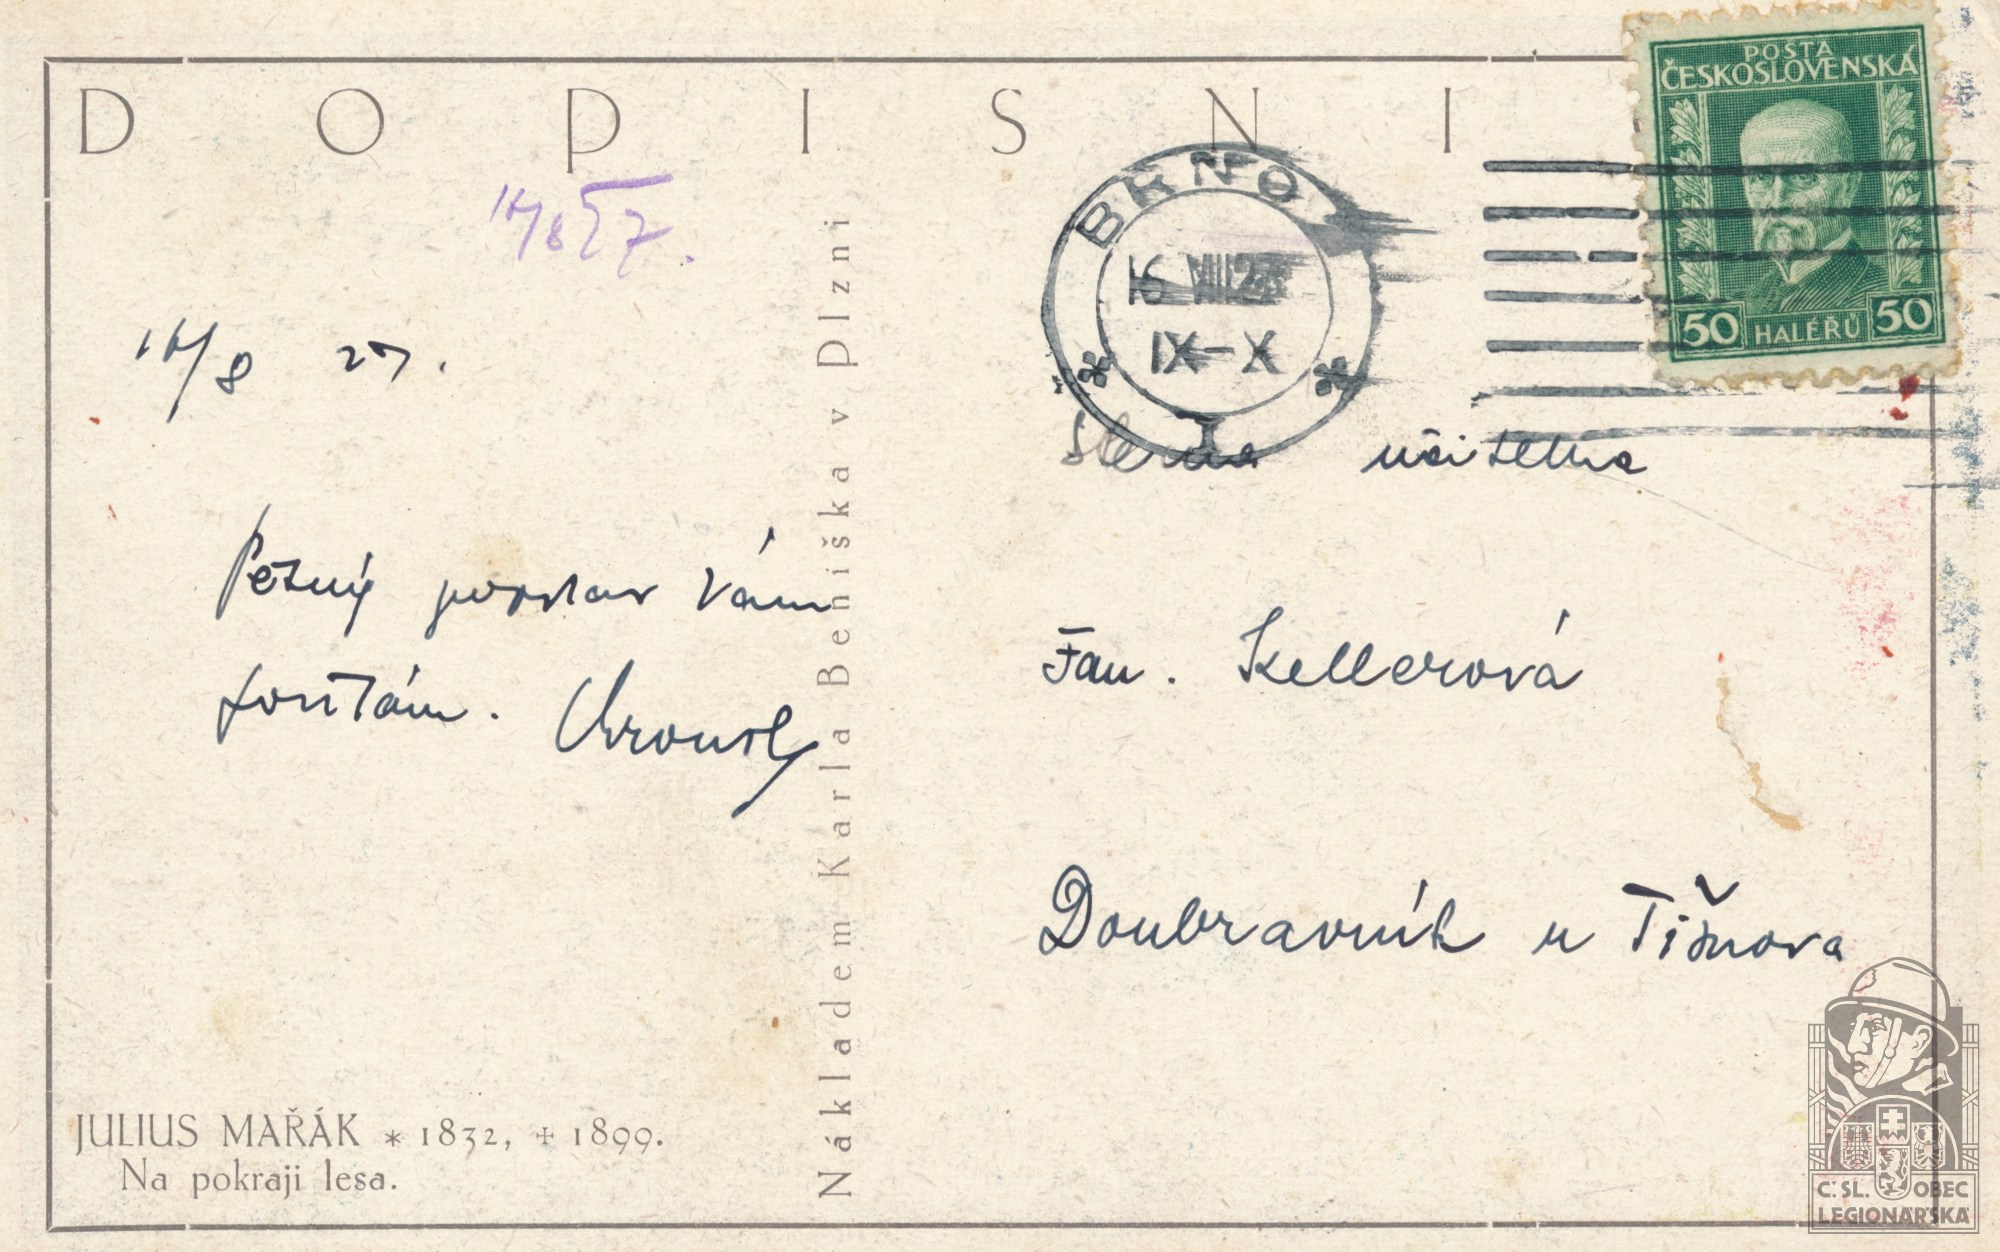 DOPISNI
POŠTA
ČESKOSLOVENSKÁ
50 HALÉŘŮ 50
BRNO
15 VIII 27
IX–X
1
14/8 27.
14/8 27.
Slečna učitelka
Pěkný pozdrav Vám
Fan. Kellerová
posílám.
Doubravník u Tišnova
Nákladem Karla Beníška v Plzni
JULIUS MAŘÁK * 1832, + 1899.
Na pokraji lesa.
Č. SL. OBEC
LEGIONÁŘSKÁ